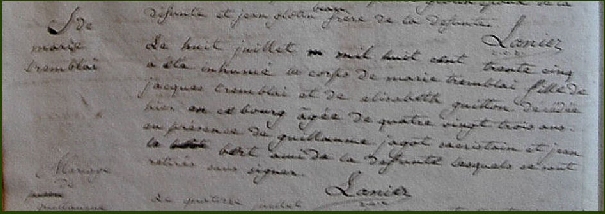 défunte et jean plotin beau frère de la défunte
Lanier
S de
marie
tremblai
Le huit juillet mil huit cent trente cinq
a été inhumé le corps de marie tremblai fille de
jacques tremblai et de elisabeth guitton décédée
hier en ce bourg âgée de quatre vingt trois ans.
en présence de guillaume jagot sacristain et jean
bert ami de la défunte lesquels se sont
retirés sans signer.
Lanier
Mariage
de
guillaume
Le quatorze juillet